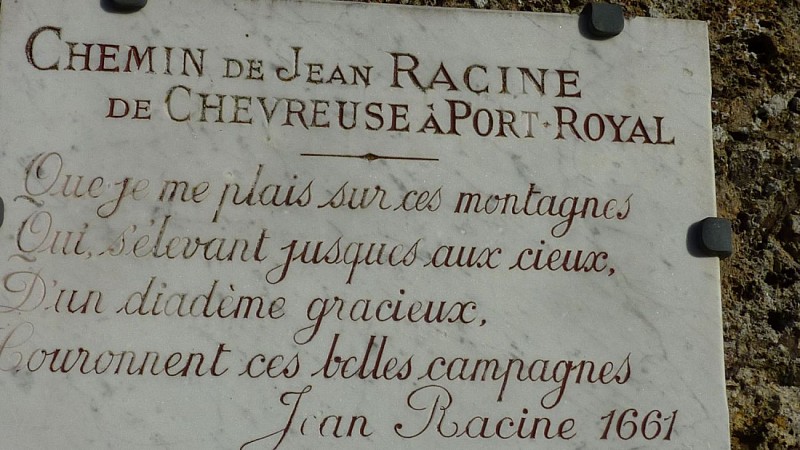 CHEMIN DE JEAN RACINE
DE CHEVREUSE À PORT-ROYAL
Que je me plais sur ces montagnes
Qui, s'élevant jusques aux cieux,
D'un diadème gracieux,
Couronnent ces belles campagnes
Jean Racine 1661